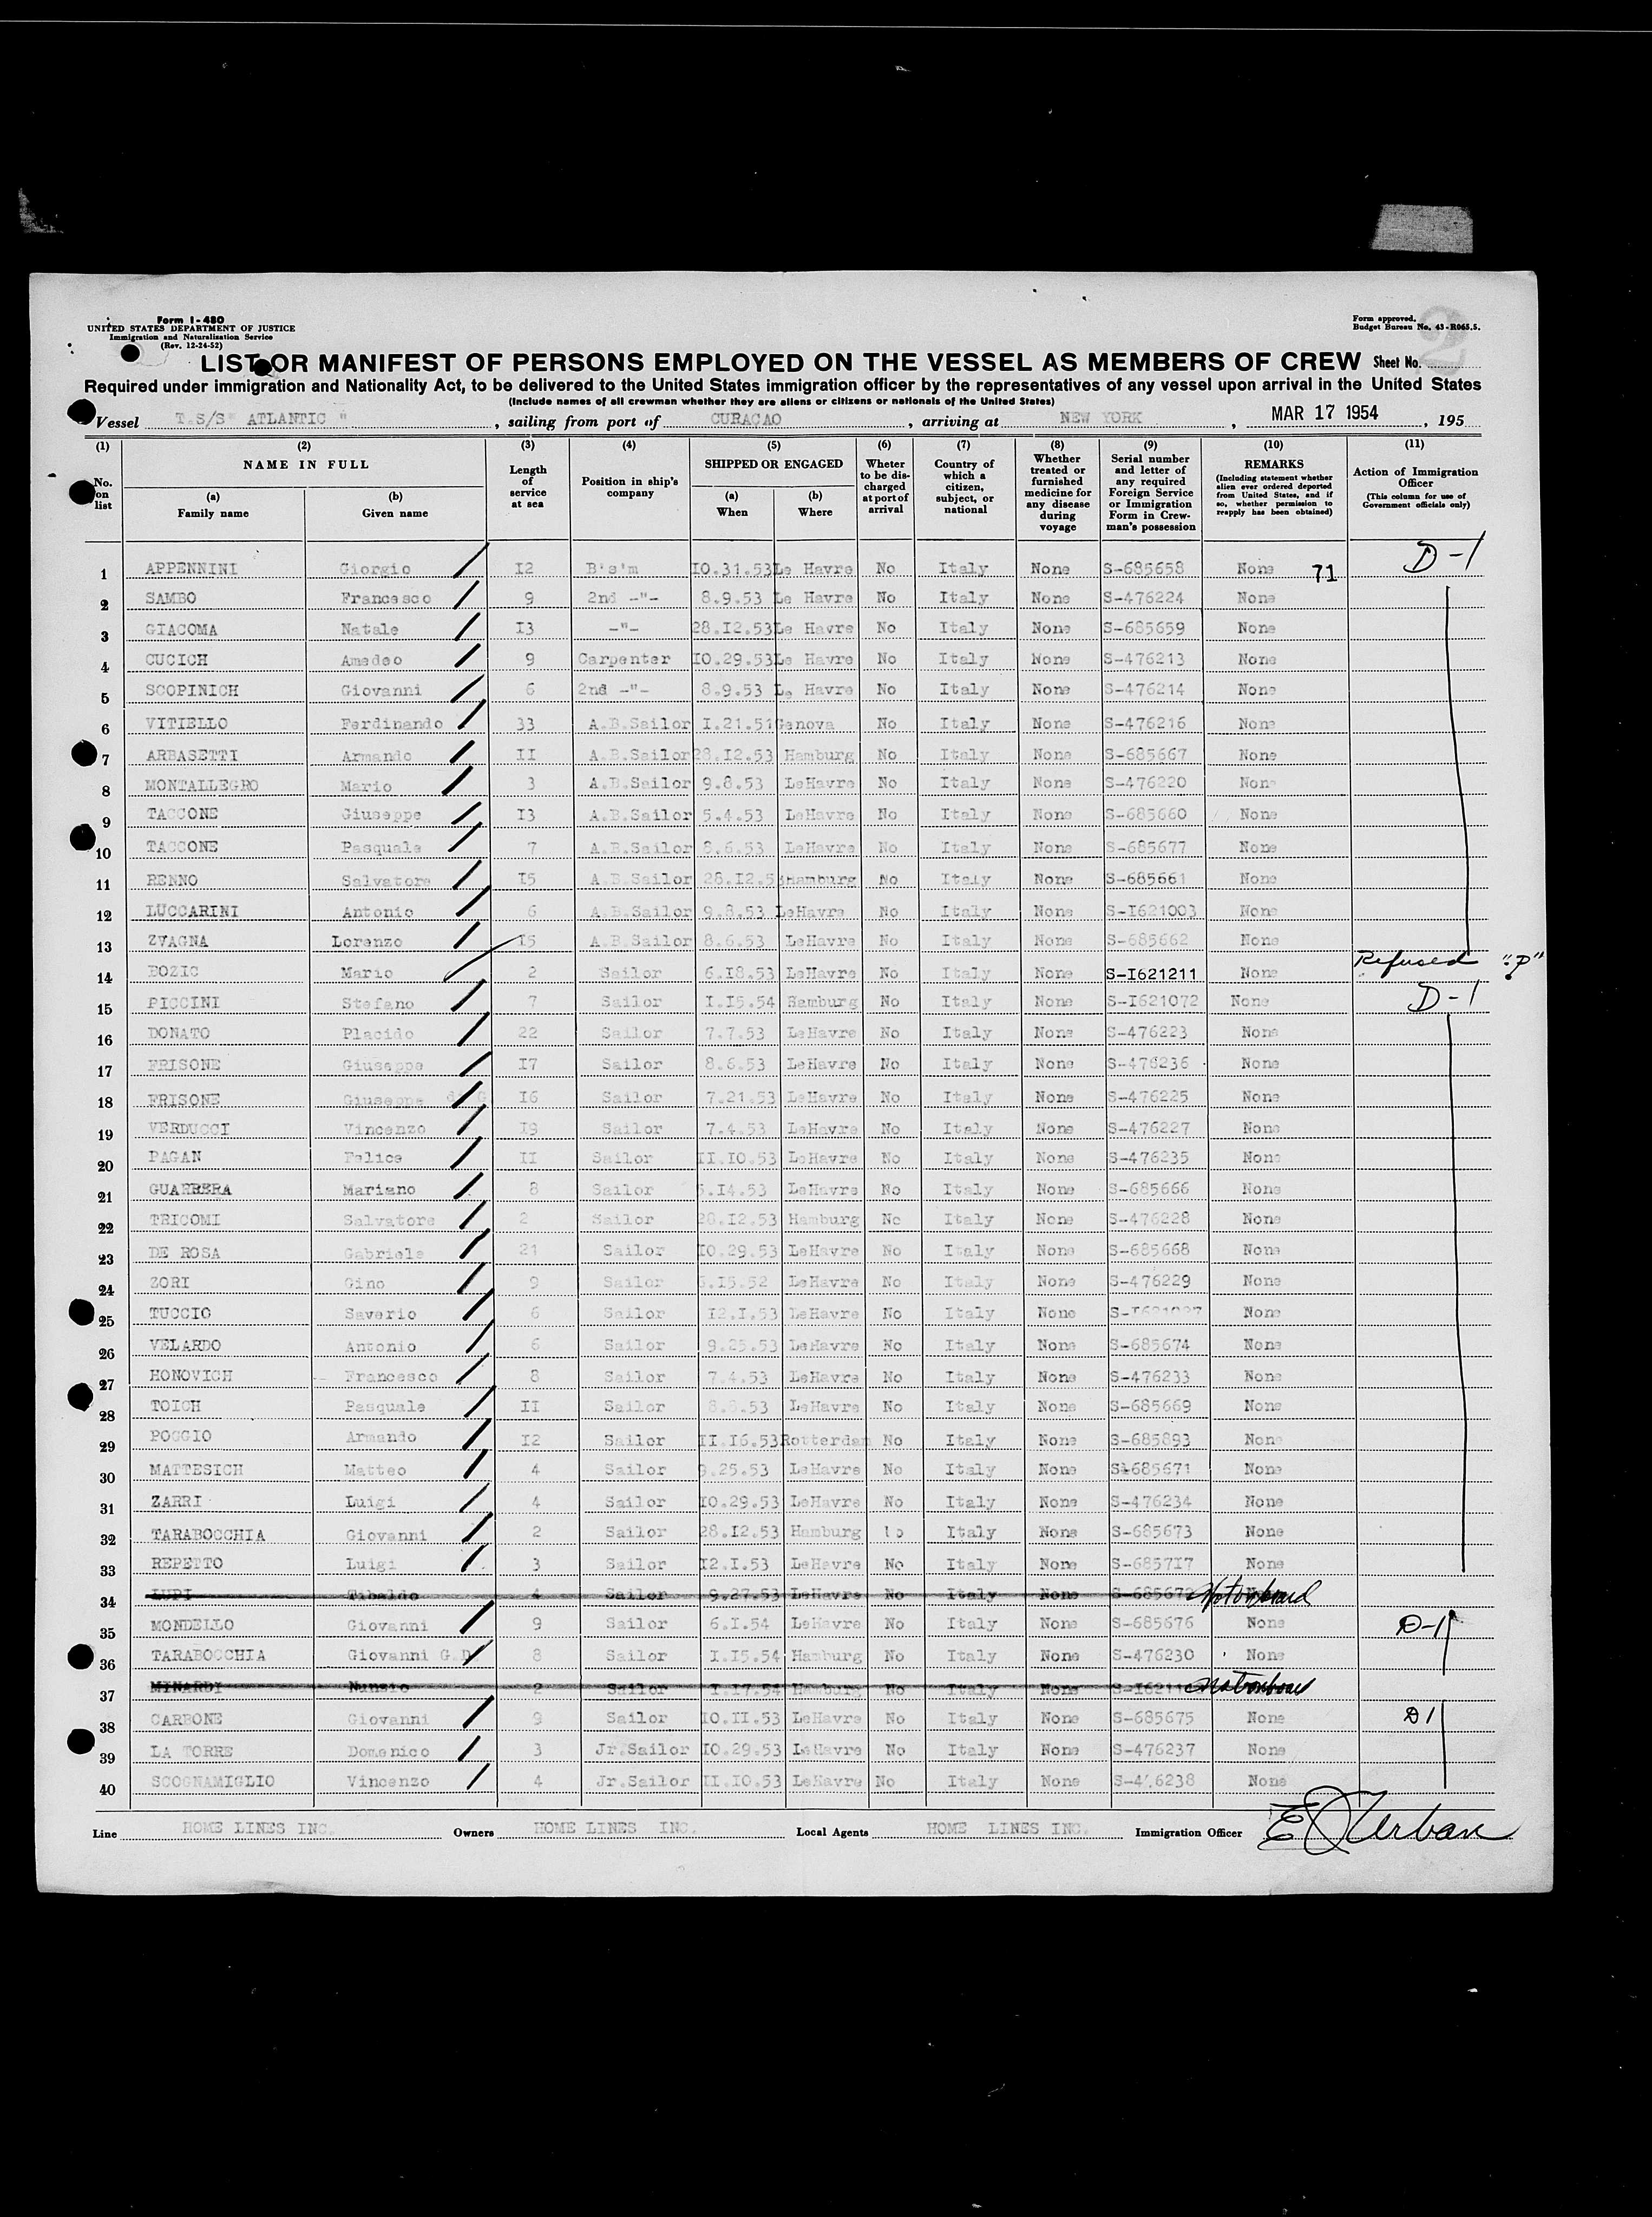 Form I-480
UNITED STATES DEPARTMENT OF JUSTICE
Immigration and Naturalization Service
(Rev. 12-24-52)
Form approved.
Budget Bureau No. 43-R065.5.
2
LIST OR MANIFEST OF PERSONS EMPLOYED ON THE VESSEL AS MEMBERS OF CREW Sheet No.
Required under immigration and Nationality Act, to be delivered to the United States immigration officer by the representatives of any vessel upon arrival in the United States
(Include names of all crewman whether they are aliens or citizens or nationals of the United States)
Vessel T.S/S" ATLANTIC " , sailing from port of CURAÇAO , arriving at NEW YORK , MAR 17 1954 , 195
(1) (2) (3) (4) (5) (6) (7) (8) (9) (10) (11)
No. on list
NAME IN FULL
(a) Family name
(b) Given name
Length of service at sea
Position in ship's company
SHIPPED OR ENGAGED
(a) When
(b) Where
Wheter to be discharged at port of arrival
Country of which a citizen, subject, or national
Whether treated or furnished medicine for any disease during voyage
Serial number and letter of any required Foreign Service or Immigration Form in Crewman's possession
REMARKS
(Including statement whether alien ever ordered deported from United States, and if so, whether permission to reapply has been obtained)
Action of Immigration Officer
(This column for use of Government officials only)
1 APPENNINI Giorgio I2 B's'm IO.31.53 Le Havre No Italy None S-685658 None 71 D-1
2 SAMBO Francesco 9 2nd -"- 8.9.53 Le Havre No Italy None S-476224 None
3 GIACOMA Natale I3 -"- 28.I2.53 Le Havre No Italy None S-685659 None
4 CUCICH Amedeo 9 Carpenter IO.29.53 Le Havre No Italy None S-476213 None
5 SCOPINICH Giovanni 6 2nd -"- 8.9.53 Le Havre No Italy None S-476214 None
6 VITIELLO Ferdinando 33 A.B.Sailor I.21.51 Genova No Italy None S-476216 None
7 ARBASETTI Armando II A.B.Sailor 28.I2.53 Hamburg No Italy None S-685667 None
8 MONTALLEGRO Mario 3 A.B.Sailor 9.8.53 LeHavre No Italy None S-476220 None
9 TACCONE Giuseppe I3 A.B.Sailor 5.4.53 LeHavre No Italy None S-685660 None
10 TACCONE Pasquale 7 A.B.Sailor 8.6.53 LeHavre No Italy None S-685677 None
11 RENNO Salvatore I5 A.B.Sailor 28.I2.5 Hamburg No Italy None S-685661 None
12 LUCCARINI Antonio 6 A.B.Sailor 9.8.53 LeHavre No Italy None S-I621003 None
13 ZVAGNA Lorenzo I5 A.B.Sailor 8.6.53 LeHavre No Italy None S-685662 None
14 BOZIC Mario 2 Sailor 6.I8.53 LeHavre No Italy None S-I621211 None Refused "P"
15 PICCINI Stefano 7 Sailor I.I5.54 Hamburg No Italy None S-I621072 None D-1
16 DONATO Placido 22 Sailor 7.7.53 LeHavre No Italy None S-476223 None
17 FRISONE Giuseppe I7 Sailor 8.6.53 LeHavre No Italy None S-476236 None
18 FRISONE Giuseppe I6 Sailor 7.21.53 LeHavre No Italy None S-476225 None
19 VERDUCCI Vincenzo I9 Sailor 7.4.53 LeHavre No Italy None S-476227 None
20 PAGAN Felice II Sailor II.IO.53 LeHavre No Italy None S-476235 None
21 GUARRERA Mariano 8 Sailor 5.I4.53 LeHavre No Italy None S-685666 None
22 TRICOMI Salvatore 2 Sailor 28.I2.53 Hamburg No Italy None S-476228 None
23 DE ROSA Gabriele 21 Sailor IO.29.53 LeHavre No Italy None S-685668 None
24 ZORI Gino 9 Sailor .I5.52 LeHavre No Italy None S-476229 None
25 TUCCIO Saverio 6 Sailor I2.I.53 LeHavre No Italy None None
26 VELARDO Antonio 6 Sailor 9.25.53 LeHavre No Italy None S-685674 None
27 HONOVICH Francesco 8 Sailor 7.4.53 LeHavre No Italy None S-476233 None
28 TOICH Pasquale II Sailor LeHavre No Italy None S-685669 None
29 POGGIO Armando I2 Sailor II.I6.53 Rotterdam No Italy None S-685893 None
30 MATTESICH Matteo 4 Sailor 9.25.53 LeHavre No Italy None S-685671 None
31 ZARRI Luigi 4 Sailor IO.29.53 LeHavre No Italy None S-476234 None
32 TARABOCCHIA Giovanni 2 Sailor 28.I2.53 Hamburg Italy None S-685673 None
33 REPETTO Luigi 3 Sailor I2.I.53 LeHavre No Italy None S-6857I7 None
34 LUPI Tibaldo 4 Sailor 9.27.53 LeHavre No Italy None Not on board
35 MONDELLO Giovanni 9 Sailor 6.I.54 LeHavre No Italy None S-685676 None D-1
36 TARABOCCHIA Giovanni G.D 8 Sailor I.I5.54 Hamburg No Italy None S-476230 None
37 MINARDI Nunzio 2 Sailor I.I7.54 Hamburg No Italy None Not on board
38 CARBONE Giovanni 9 Sailor IO.II.53 LeHavre No Italy None S-685675 None D1
39 LA TORRE Domenico 3 Jr.Sailor IO.29.53 LeHavre No Italy None S-476237 None
40 SCOGNAMIGLIO Vincenzo 4 Jr.Sailor II.IO.53 LeHavre No Italy None S-476238 None
Line HOME LINES INC. Owners HOME LINES INC. Local Agents HOME LINES INC. Immigration Officer E Urban